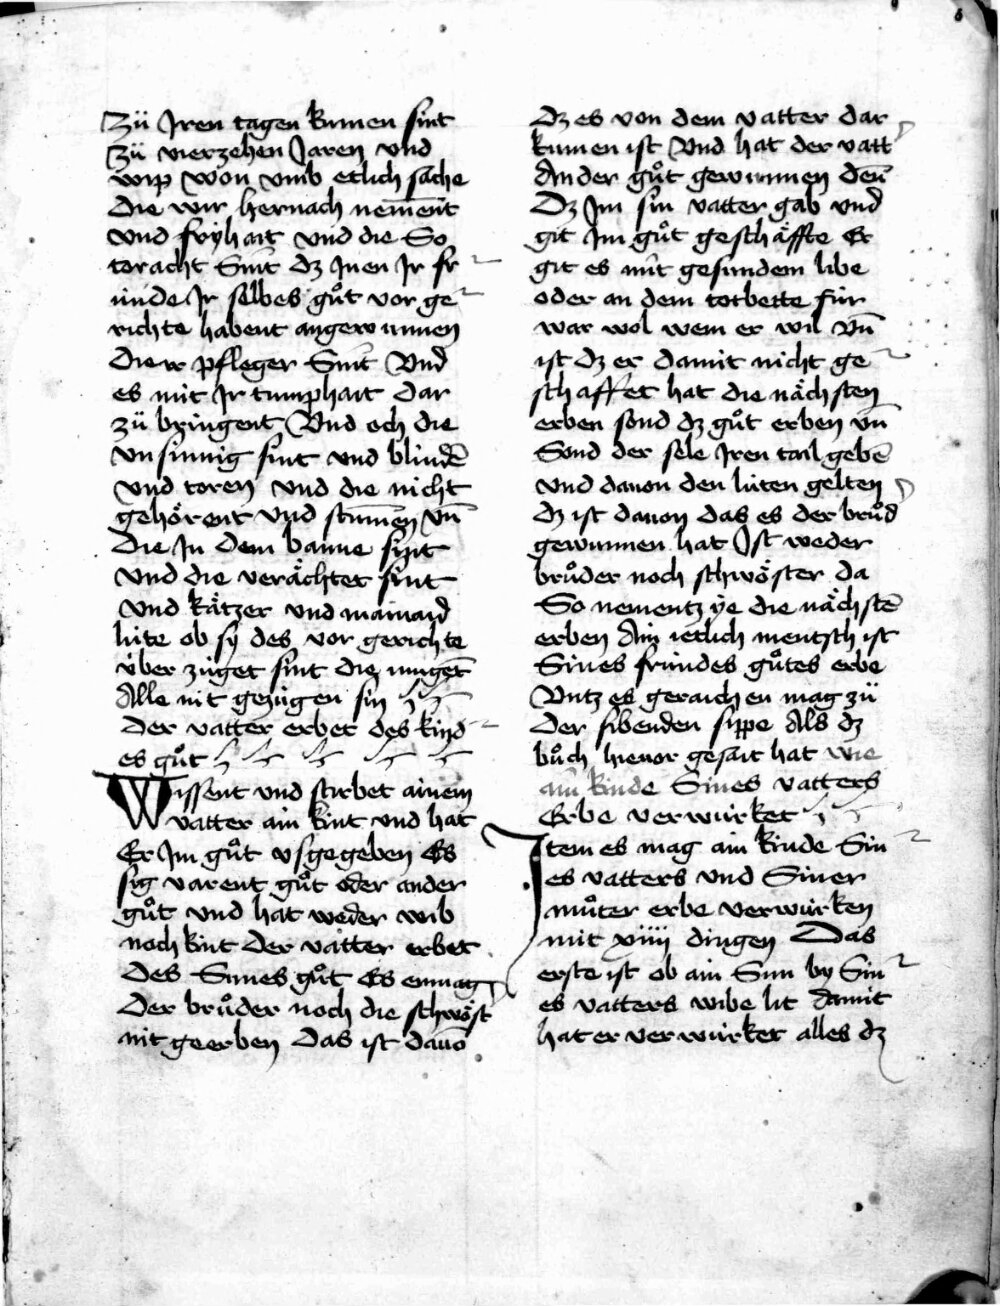 Zü Jren tagen kumen sint
Zü vierzehen Jaren vnd
wip won vmb etlich sache
die wir hernach nem̄ent
vnd fryhait vnd die So
toracht Sint dz Jnen Jr fr
ünde Jr selbes gůt vor ge
richte habent angewunnen
die ir pfleger Sint Vnd
es mit Jr tumphait dar
zü bringent Vnd och die
vnsinnig sint vnd blindē
vnd toren vnd die nicht
gehörent vnd stum̄en vn̄
die Jn dem banne sint
vnd die verächtet sint
vnd kätzer vnd mainaid
lüte ob sy des vor gerichte
über züget sint die mugēt
Alle nit gezügen sin
Der vatter erbet des kind
es gůt
Wissent vnd stirbet ainem
vatter ain kint vnd hat
Er Jm gůt vsgegeben Es
sig varent gůt oder ander
gůt vnd hat weder wib
noch kint Der vatter erbet
des Sunes gůt Es enmag
der brůder noch die schwöst
nit geerben Das ist dauō
Dz es von dem vatter dar
kumen ist Vnd hat der vatt
Ander gůt gewunnen den̄
Dz Jm sin vatter gab vnd
git Jm gůt geschäffte Er
git es mit gesundem libe
oder an dem totbette für
war wol wem er wil Vn̄
ist dz er damit nicht ge
schaffet hat die nächsten
erben sond dz gůt erben vn̄
Sond der sele Jren tail gebē
vnd dauon den lüten gelten
dz ist dauon das es der brůd
gewunnen hat Ist weder
brůder noch schwöster da
So nementz ye die nächstē
erben Ain ietlich mentsch ist
Sines fründes gůtes erbe
Vntz es geraichen mag zü
der sibenden sippe Als dz
bůch hieuor gesait hat wie
ain kinde Sines vatters
Erbe verwürket
Item es mag ain kinde Sin
es vatters vnd Siner
můter erbe verwürken
mit xiiii dingen Das
erste ist ob ain Sun by Sin
es vatters wibe lit damit
hat er verwürket alles dz